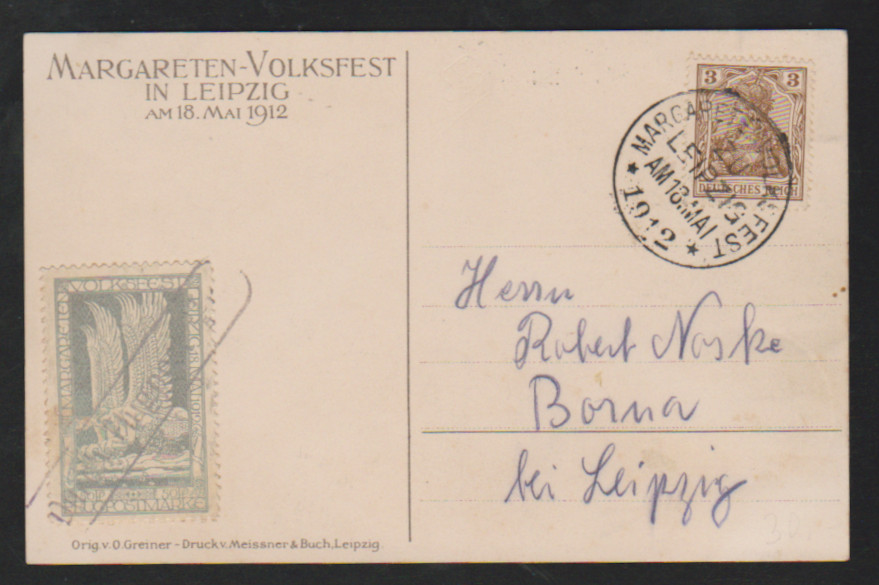 MARGARETEN-VOLKSFEST
IN LEIPZIG
AM 18. MAI 1912
3 3
DEUTSCHES REICH
MARGARETEN VOLKSFEST
LEIPZIG
AM 18. MAI
* 1912 *
VOLKSFEST
MARGARETEN
LEIPZIG
FLUGPOSTMARKE
Herrn
Robert Noske
Borna
bei Leipzig
Orig. v. O. Greiner - Druck v. Meissner & Buch, Leipzig.
30